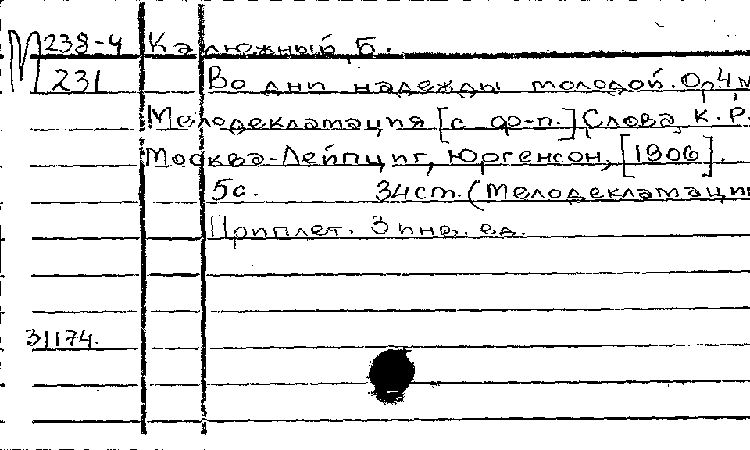 М 238-4 Калюжный, Б.
231 Во дни надежды молодой. Op.4 №
Мелодекламация [с ф-п.] Слова К.Р.
Москва-Лейпциг, Юргенсон, [1906].
5с. 34см. (Мелодекламации
Приплет. 3 инв. ед.
31174.